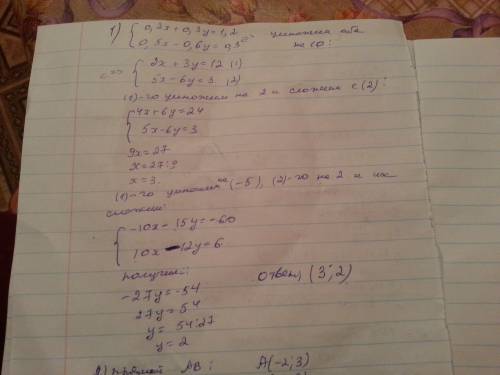 1) { 0,2x + 0,3y = 1,2
0,5x - 0,6y = 0,3 <=> умножим оба
на 10:
<=> { 2x + 3y = 12 (1)
5x - 6y = 3 (2)
(1)-го умножим на 2 и сложим с (2):
{ 4x + 6y = 24
5x - 6y = 3
9x = 27
x = 27:9
x = 3
(1)-го умножим на (-5), (2)-го на 2 и их
сложим:
{ -10x - 15y = -60
10x - 12y = 6
получим:
-27y = -54
27y = 54
y = 54:27
y = 2
ответ, (3;2)
2) прямой AB: A(-2;3)